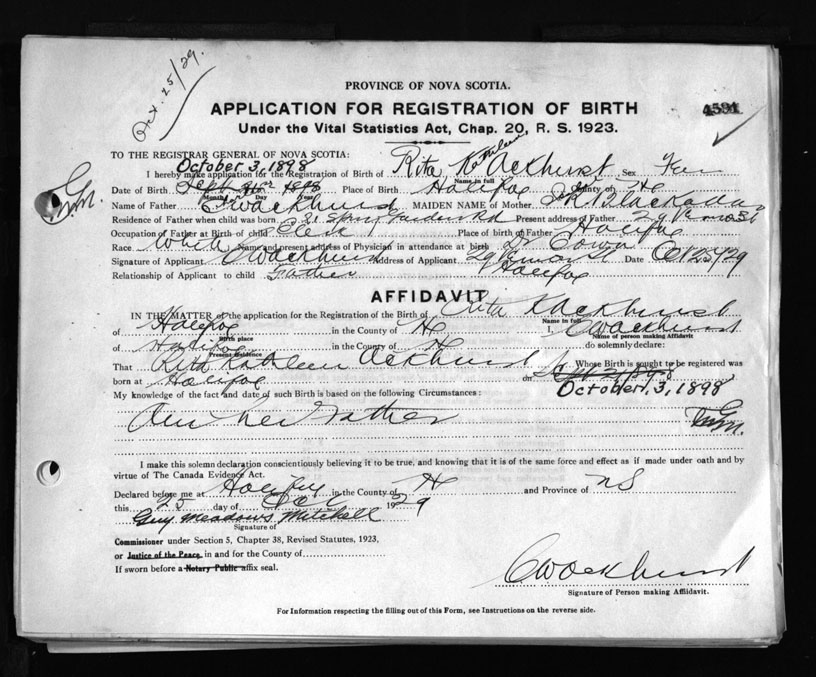 Oct. 25/29.
PROVINCE OF NOVA SCOTIA.
APPLICATION FOR REGISTRATION OF BIRTH
4591
Under the Vital Statistics Act, Chap. 20, R. S. 1923.
TO THE REGISTRAR GENERAL OF NOVA SCOTIA:
October 3, 1898
I hereby make application for the Registration of Birth of Rita Kathleen Ackhurst Sex Fem
Name in full
Date of Birth Sept 1898 Place of Birth Halifax County of Hx
Month Day Year
Name of Father C W Ackhurst MAIDEN NAME of Mother Blackadar
Residence of Father when child was born 31 Spring Garden Rd Present address of Father 29 Vernon St
Occupation of Father at Birth of child Clerk Place of birth of Father Halifax
Race White Name and present address of Physician in attendance at birth Dr Cowie
Signature of Applicant C W Ackhurst Address of Applicant 29 Vernon St Date Oct 25/29
Relationship of Applicant to child Father Halifax
AFFIDAVIT
IN THE MATTER of the application for the Registration of the Birth of Rita K Ackhurst
Name in full
of Halifax in the County of Hx I, C W Ackhurst
Birth place Name of person making Affidavit
of Halifax in the County of Hx do solemnly declare:
Present residence
That Rita Kathleen Ackhurst Whose Birth is sought to be registered was
born at Halifax on
October, 3, 1898
My knowledge of the fact and date of such Birth is based on the following Circumstances:
Am her Father
I make this solemn declaration conscientiously believing it to be true, and knowing that it is of the same force and effect as if made under oath and by
virtue of The Canada Evidence Act.
Declared before me at Halifax in the County of Hx and Province of NS
this 25 day of Oct 1929
Guy Meadows Mitchell
Signature of
Commissioner under Section 5, Chapter 38, Revised Statutes, 1923,
or Justice of the Peace, in and for the County of
If sworn before a Notary Public affix seal.
C W Ackhurst
Signature of Person making Affidavit.
For Information respecting the filling out of this Form, see Instructions on the reverse side.